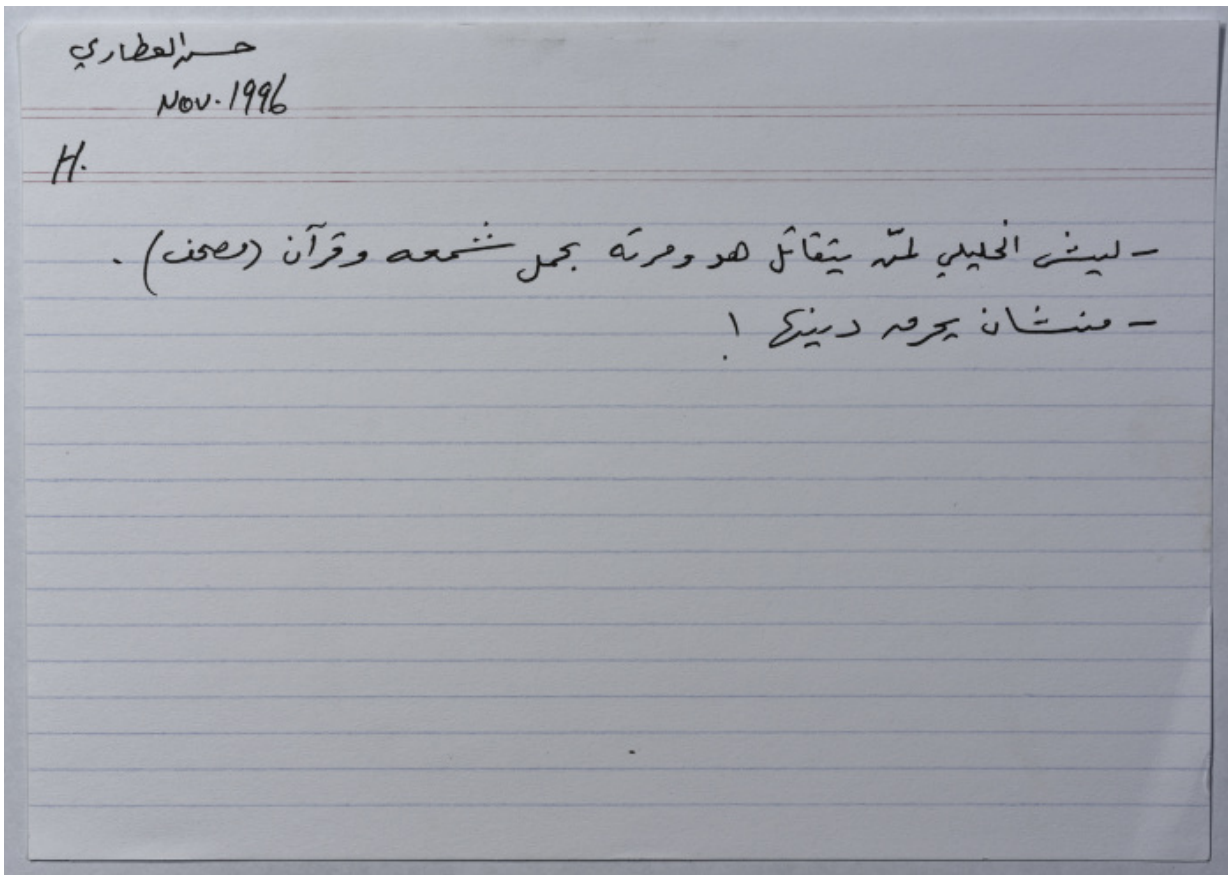 حسن العطاري
Nov. 1996
H.
- ليش الخليلي لمّن يتقاتل هو ومرته بحمل شمعه وقرآن (مصحف) .
- منشان يحرق دينها !